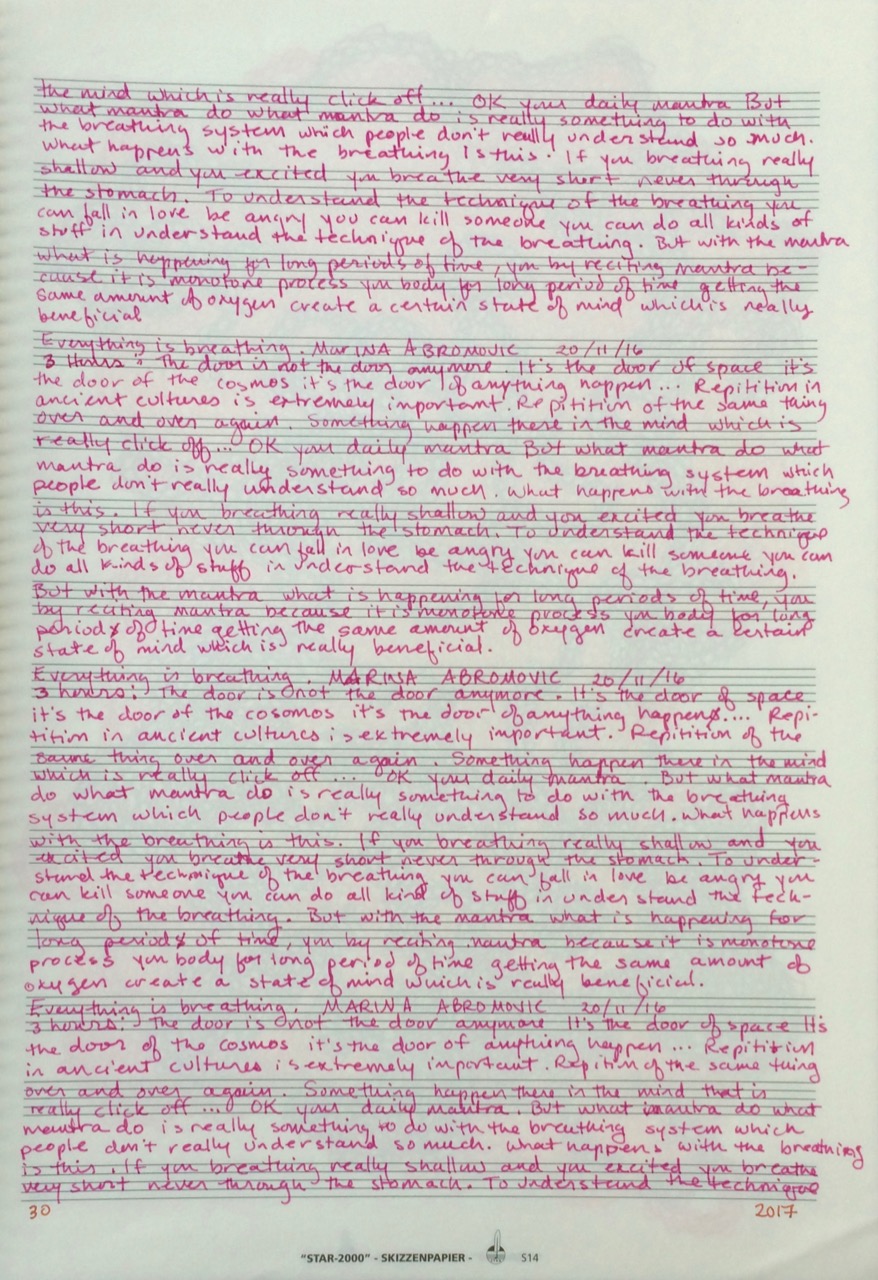 the mind which is really click off... OK your daily mantra But
what mantra do what mantra do is really something to do with
the breathing system which people don't really understand so much.
What happens with the breathing Is this. If you breathing really
shallow and you excited you breathe very short never through
the stomach. To understand the technique of the breathing you
can fall in love be angry you can kill someone you can do all kinds of
stuff in understand the technique of the breathing. But with the mantra
what is happening for long periods of time, you by reciting mantra be-
cause it is monotone process you body for long period of time getting the
same amount of oxygen create a certain state of mind which is really
beneficial
Everything is breathing. MARINA ABROMOVIC 20/11/16
3 Hours: The door is not the door anymore. It's the door of space it's
the door of the cosmos it's the door of anything happen... Repitition in
ancient cultures is extremely important. Repitition of the same thing
over and over again. Something happen there in the mind which is
really click off... OK your daily mantra But what mantra do what
mantra do is really something to do with the breathing system which
people don't really understand so much. What happens with the breathing
is this. If you breathing really shallow and you excited you breathe
very short never through the stomach. To understand the technique
of the breathing you can fall in love be angry you can kill someone you can
do all kinds of stuff in understand the technique of the breathing.
But with the mantra what is happening for long periods of time, you
by reciting mantra because it is monotone process you body for long
periods of time getting the same amount of oxygen create a certain
state of mind which is really beneficial.
Everything is breathing. MARINA ABROMOVIC 20/11/16
3 hours: The door is not the door anymore. It's the door of space
it's the door of the cosomos it's the door of anything happens.... Repi-
tition in ancient cultures is extremely important. Repitition of the
same thing over and over again. Something happen there in the mind
which is really click off... OK your daily mantra. But what mantra
do what mantra do is really something to do with the breathing
system which people don't really understand so much. What happens
with the breathing is this. If you breathing really shallow and you
excited you breathe very short never through the stomach. To under-
stand the technique of the breathing you can fall in love be angry you
can kill someone you can do all kind of stuff in under stand the tech-
nique of the breathing. But with the mantra what is happening for
long periods of time, you by reciting mantra because it is monotone
process you body for long period of time getting the same amount of
oxygen create a state of mind which is really beneficial.
Everything is breathing. MARINA ABROMOVIC 20/11/16
3 hours: The door is not the door anymore It's the door of space It's
the door of the cosmos it's the door of anything happen... Repitition
in ancient cultures is extremely important. Repition of the same thing
over and over again. Something happen there in the mind that is
really click off... OK your daily mantra. But what mantra do what
mantra do is really something to do with the breathing system which
people don't really understand so much. What happens with the breathing
is this. If you breathing really shallow and you excited you breathe
very short never through the stomach. To understand the technique
30 2017
"STAR-2000" - SKIZZENPAPIER - S14